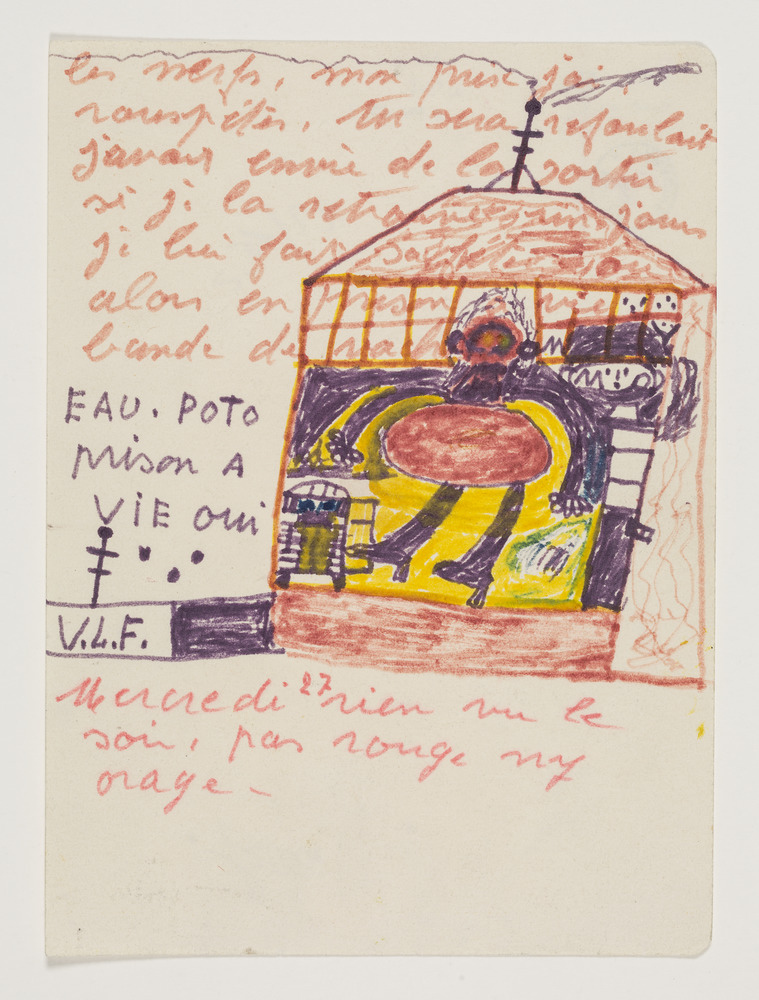 les nerfs, mon puis j'ai,
rouspéter, tu sera refoulait
javais envie de la sortir
si je la retrouve un jours
je lui fait
alors en prison vie
bande de
EAU. POTO
prison A
ViE oui
V.L.F.
Mercredi 27 rien vu le
soir, pas rouge ny
orage -